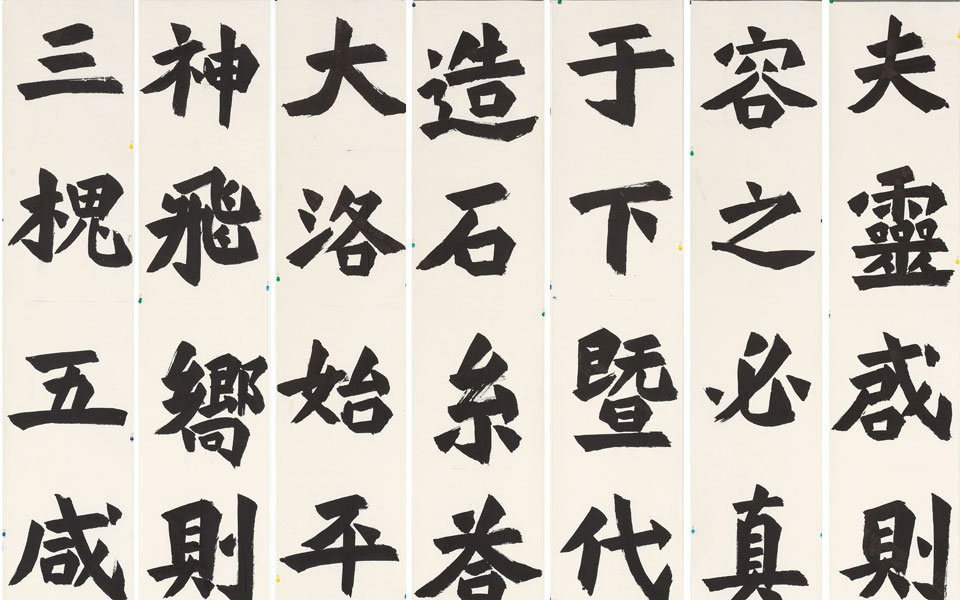 夫靈啓則
容之必真
于下暨代
造石糸荅
大洛始平
神飛嚮則
三槐五咸